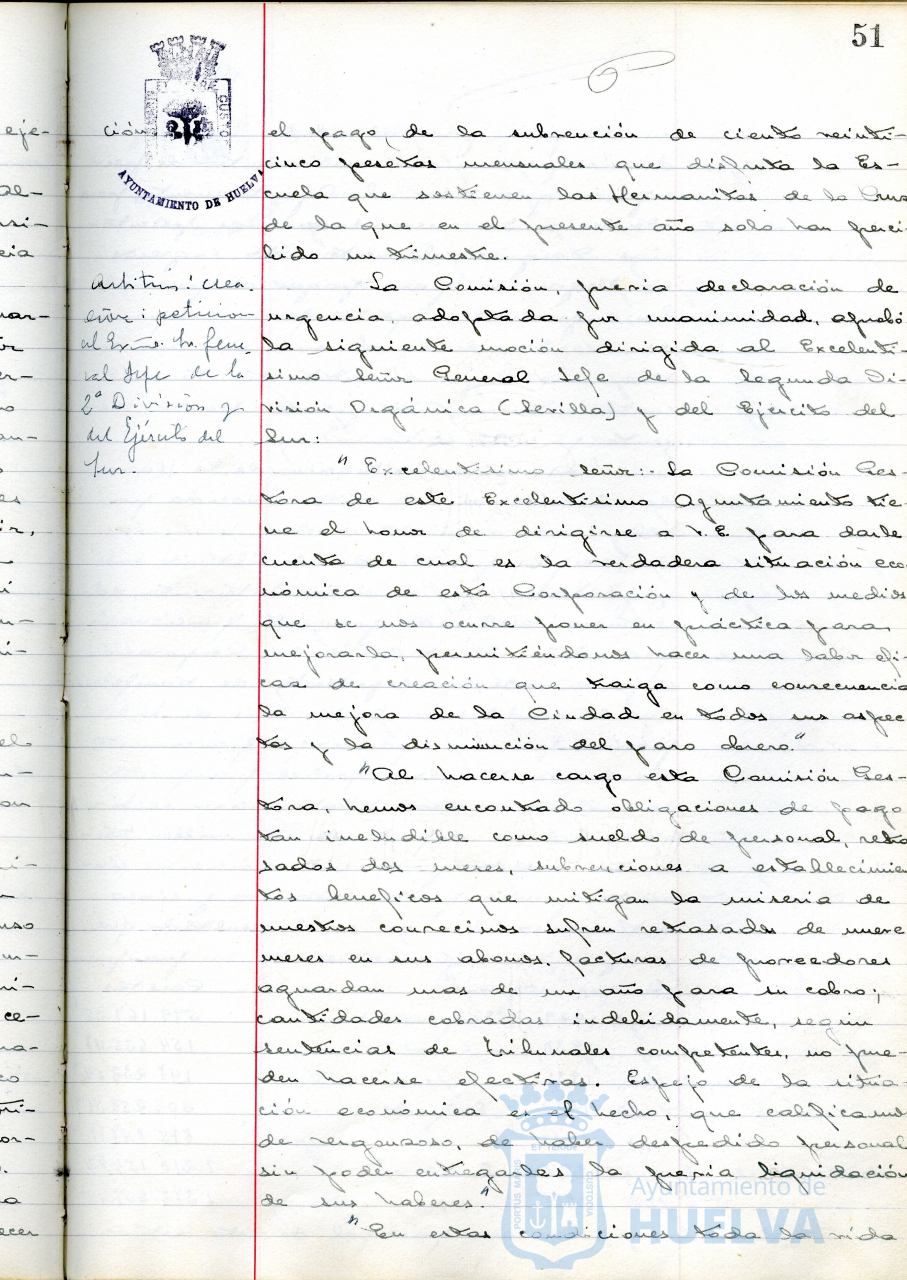 51
AYUNTAMIENTO DE HUELVA
ción
el pago, de la subvención de ciento veinti-
cinco pesetas mensuales que disfruta la Es-
cuela que sostienen las Hermanitas de la Cruz
de la que en el presente año solo han perci-
bido un trimestre.
Arbitrios: crea-
ción: peticion
al Exmo. Sr. Gene-
ral Jefe de la
2ª División y
del Ejército del
Sur.
La Comisión, previa declaración de
urgencia, adoptada por unanimidad, aprobó
la siguiente moción dirigida al Excelenti-
simo Señor General Jefe de la Segunda Di-
visión Orgánica (Sevilla) y del Ejercito del
Sur:
"Excelentisimo Señor:- La Comisión Ges-
tora de este Excelentisimo Ayuntamiento tie-
ne el honor de dirigirse a V.E. para darle
cuenta de cual es la verdadera situación eco-
nómica de esta Corporación y de los medios
que se nos ocurre poner en práctica para
mejorarla, permitiéndonos hacer una labor efi-
caz de creación que traiga como consecuencia
la mejora de la Ciudad en todos sus aspec-
tos y la disminución del paro obrero."
"Al hacerse cargo esta Comisión Ges-
tora, hemos encontrado obligaciones de pago
tan ineludible como sueldo de personal, retra-
sados dos meses, subvenciones a establecimien-
tos beneficos que mitigan la miseria de
nuestros convecinos sufren retrasados de nueve
meses en sus abonos. facturas de proveedores
aguardan mas de un año para su cobro;
cantidades cobradas indebidamente, según
sentencias de Tribunales competentes, no pue-
den hacerse efectivas. Espejo de la situa-
ción económica es el hecho, que calificamos
de vergonzoso, de haber despedido personal
sin poder entregarles la previa liquidación
de sus haberes."
"En estas condiciones toda la vida
PORTUS MARIS ET TERRE CUSTODIA
Ayuntamiento de
HUELVA